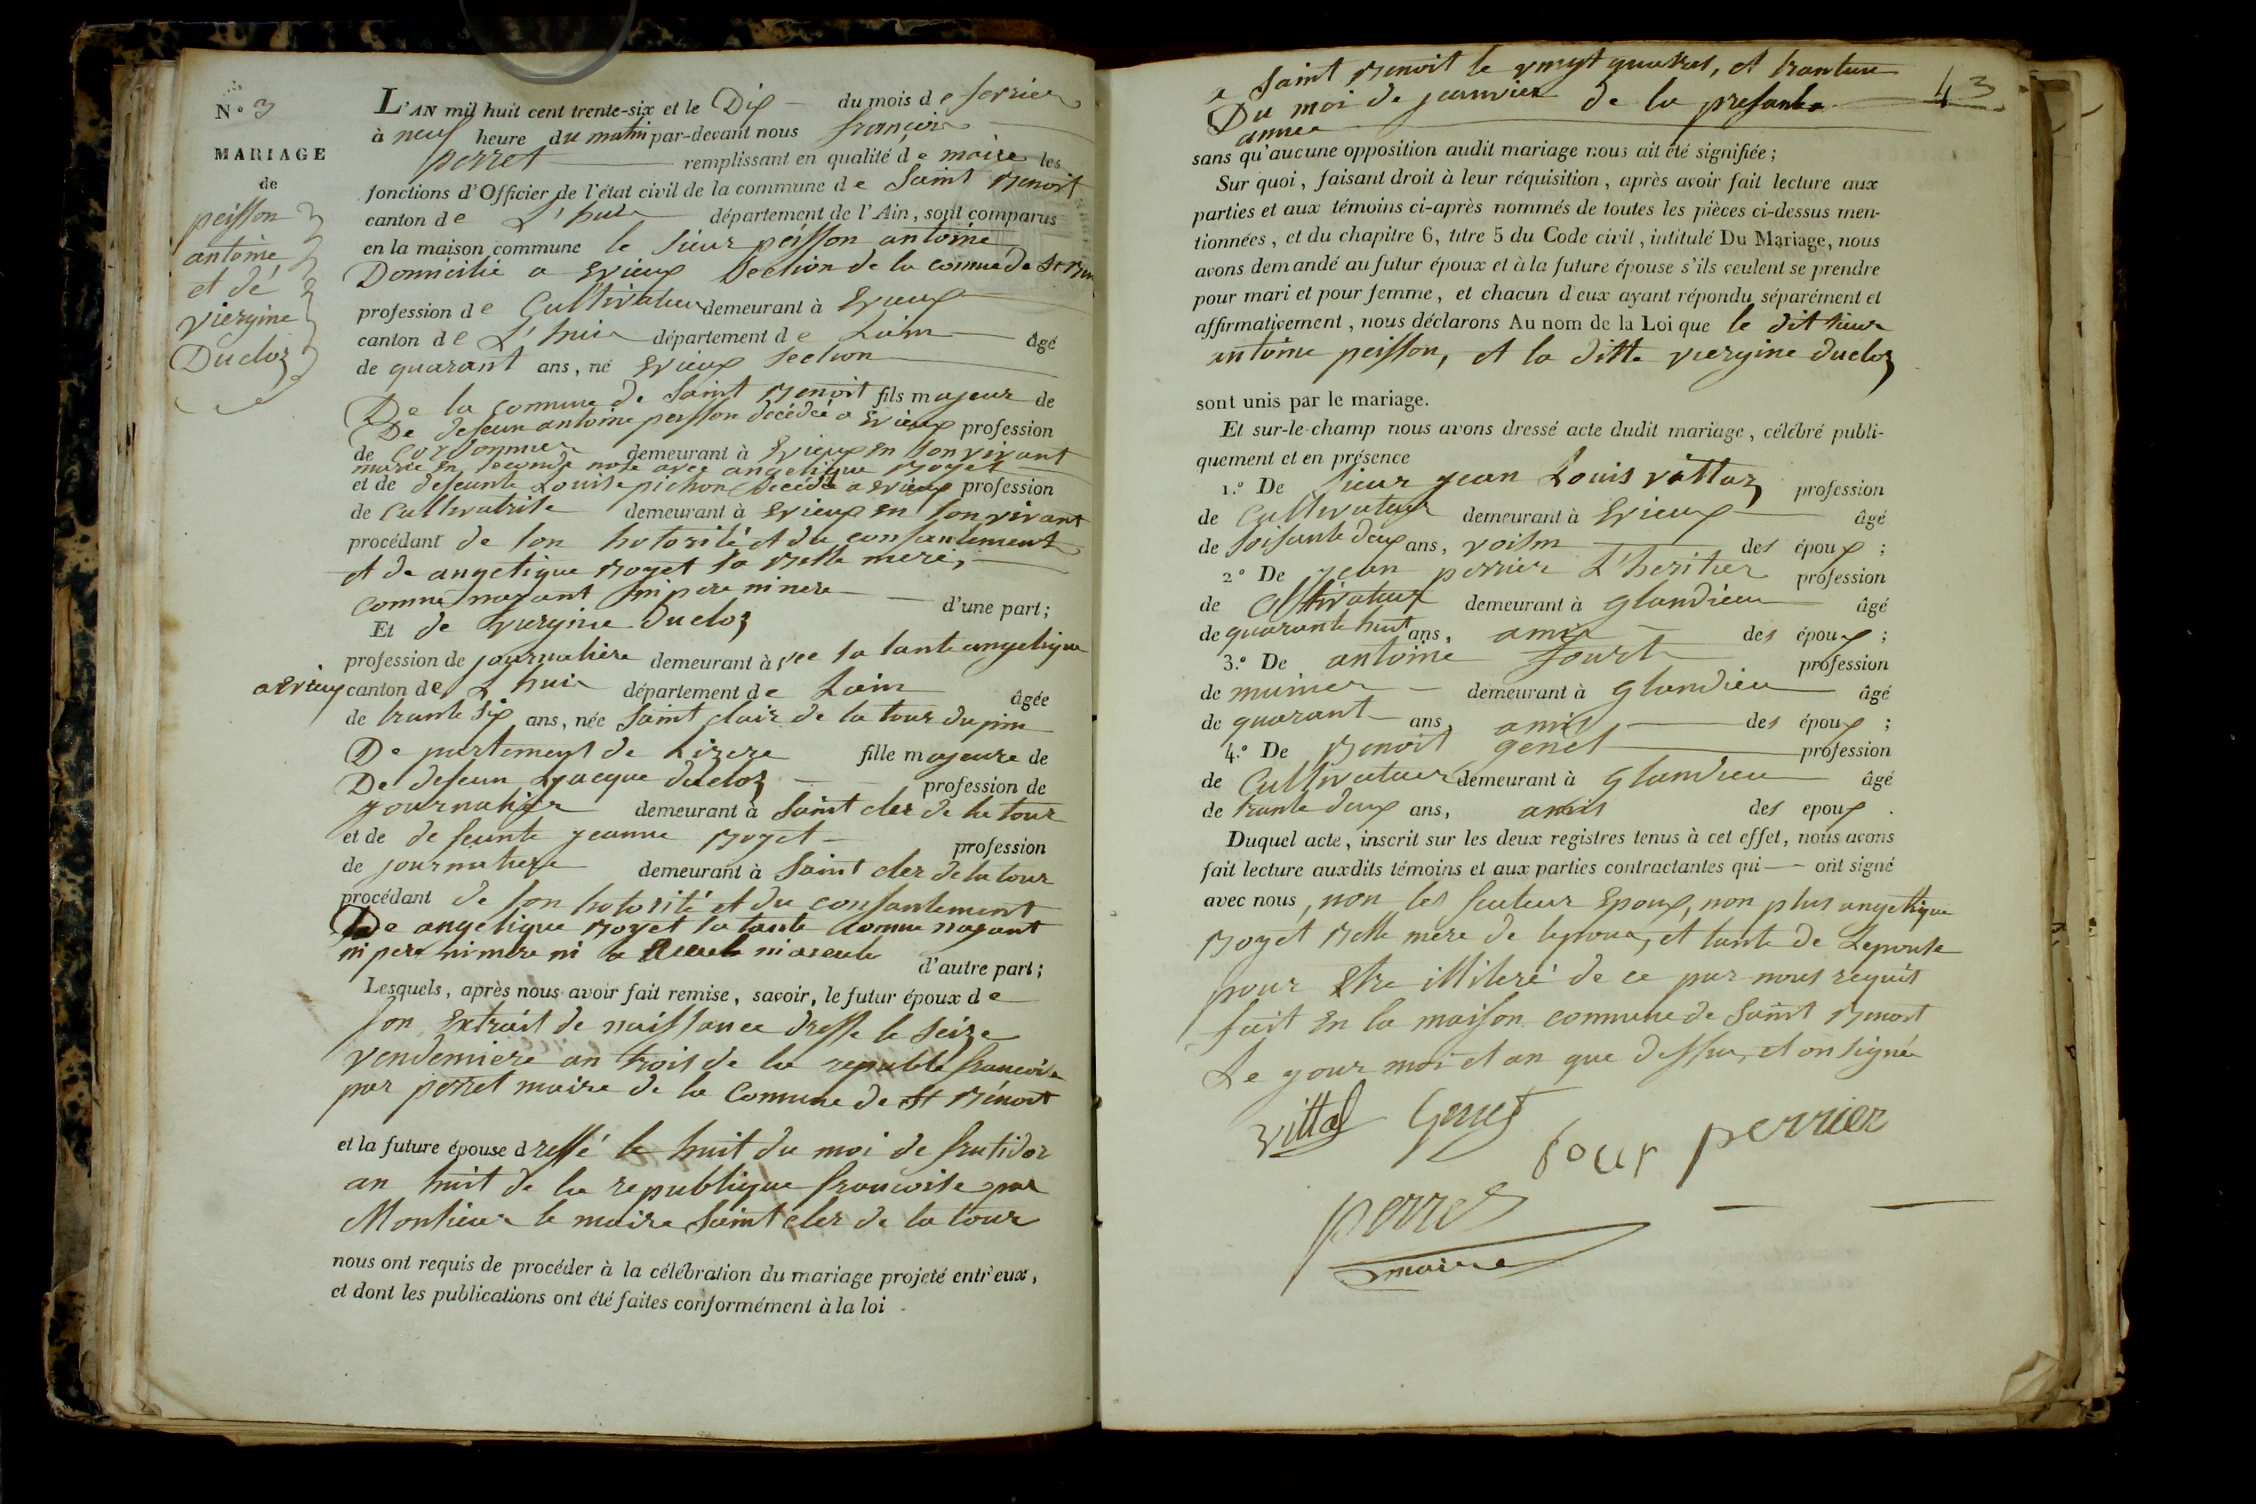 N.o 3
MARIAGE
de
peisson
antoine
et dé
viergine
Ducloz
L'AN mil huit cent trente-six et le Dix - du mois de fevrier
à neuf heure du matin par-devant nous françois
perret remplissant en qualité de maire les
fonctions d'Officier de l'état civil de la commune de Saint Benoit
canton de L'huis département de l'Ain, sont comparus
en la maison commune le sieur peisson antoine
Domicilié a Evieux section de la comune de St Ben
profession de Cultivateur demeurant à Evieux
canton de L'huis département de Lain âgé
de quarant ans, né Evieux section
De la commune de Saint Benoit fils majeur de
De defeun antoine peisson décédéé a Evieux profession
de Cordonnier demeurant à Evieux en son vivant
marié en seconde nose avec angelique Boyet
et de defeunte Louise pichon décédé a Evieux profession
de Cultivatrise demeurant à Evieux en son vivant
procédant de son hotorité et du consantement
et de angelique Boyet sa Belle mere,
comme nayant ni pere ni mere d'une part;
Et de viergine Ducloz
profession de journaliere demeurant à vec sa tante angelique
a Evieux canton de L'huis département de Lain âgée
de trante six ans, née Saint clair de la tour du pin
De partement de Lizere fille majeure de
De defeun Jacque ducloz profession de
journalier demeurant à Saint cler de la tour
et de defeunte jeanne Boyet profession
de journaliere demeurant à Saint cler de la tour
procédant de son hotorité et du consantement
De angelique Boyet sa tante comme nayant
ni pere ni mere ni a ieul ni aieule d'autre part;
Lesquels, après nous avoir fait remise, savoir, le futur époux de
son Extrait de naissance dressé le seize
vendemiere an trois de la republe françoise
par perret maire de la Comune de St Bénoit
et la future épouse dressé le huit du moi de frutidor
an huit de la republique françoise par
Monsieur le maire Saint cler de la tour
nous ont requis de procéder à la célébration du mariage projeté entr'eux,
et dont les publications ont été faites conformément à la loi
a Saint Benoit le vingt quatres, et trante un
Du moi de janvier de la presante
année
43
sans qu'aucune opposition audit mariage nous ait été signifiée;
Sur quoi, faisant droit à leur réquisition, après avoir fait lecture aux
parties et aux témoins ci-après nommés de toutes les pièces ci-dessus men-
tionnées, et du chapitre 6, titre 5 du Code civil, intitulé Du Mariage, nous
avons demandé au futur époux et à la future épouse s'ils veulent se prendre
pour mari et pour femme, et chacun d'eux ayant répondu séparément et
affirmativement, nous déclarons Au nom de la Loi que le dit sieur
antoine peisson, et la ditte viergine ducloz
sont unis par le mariage.
Et sur-le-champ nous avons dressé acte dudit mariage, célébré publi-
quement et en présence
1.o De sieur jean Louis vittoz profession
de Cultivateur demeurant à Evieux âgé
de soisante deux ans, voisin des époux;
2.o De jean perrier L'heritier profession
de Cltivateur demeurant à glandieu âgé
de quarante huit ans, amis des époux;
3.o De antoine fourt profession
de muinier demeurant à glandieu âgé
de quarant ans, amis des époux;
4.o De Benoit genet profession
de Cultivateur demeurant à glandieu âgé
de trante deux ans, amis des epoux.
Duquel acte, inscrit sur les deux registres tenus à cet effet, nous avons
fait lecture auxdits témoins et aux parties contractantes qui — ont signé
avec nous, non les feuteur Epoux, non plus angelique
Boyet Belle mere de lepoux, et tante de Lepouse
pour Etre illiteré de ce par nous requis
fait En la maison commune de Saint Benoit
Le jour moi et an que dessus, et on signée
vittoz Genet
four perrier
perret
maire